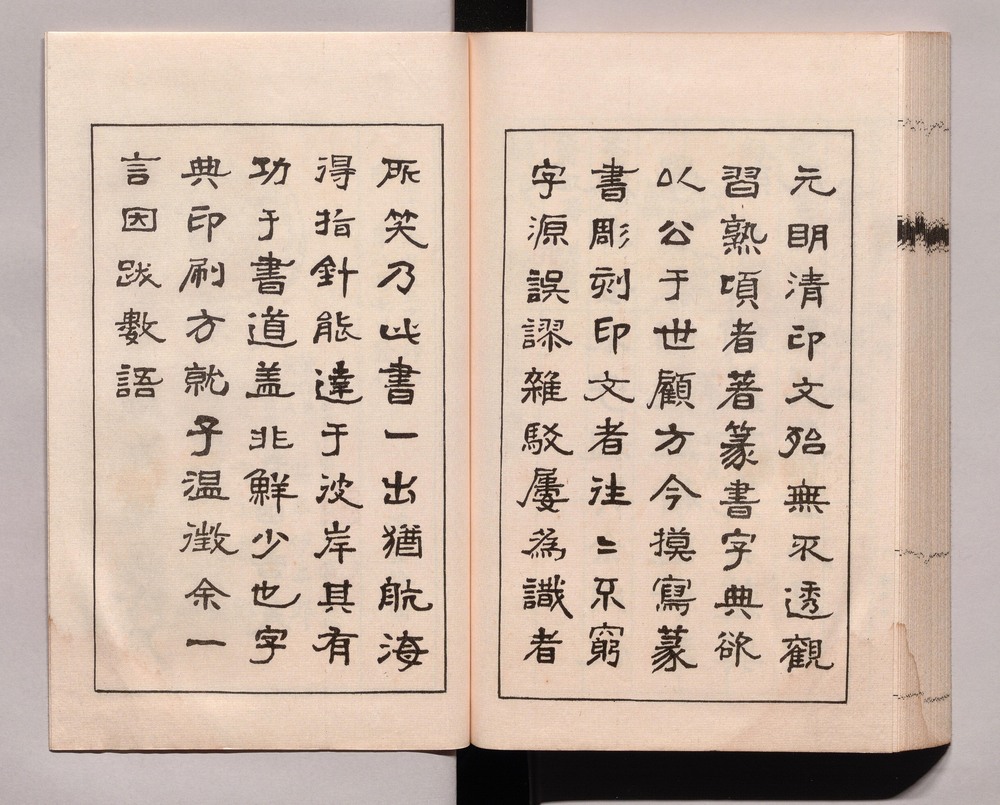 元明清印文殆無不透觀
習熟項者著篆書字典欲
以公于世顧方今摸寫篆
書彫刻印文者往〻不窮
字源誤謬雜駁屢為識者
所笑乃此書一出猶航海
得指針能達于彼岸其有
功于書道盖非鮮少也字
典印刷方就予温徵余一
言因跋數語